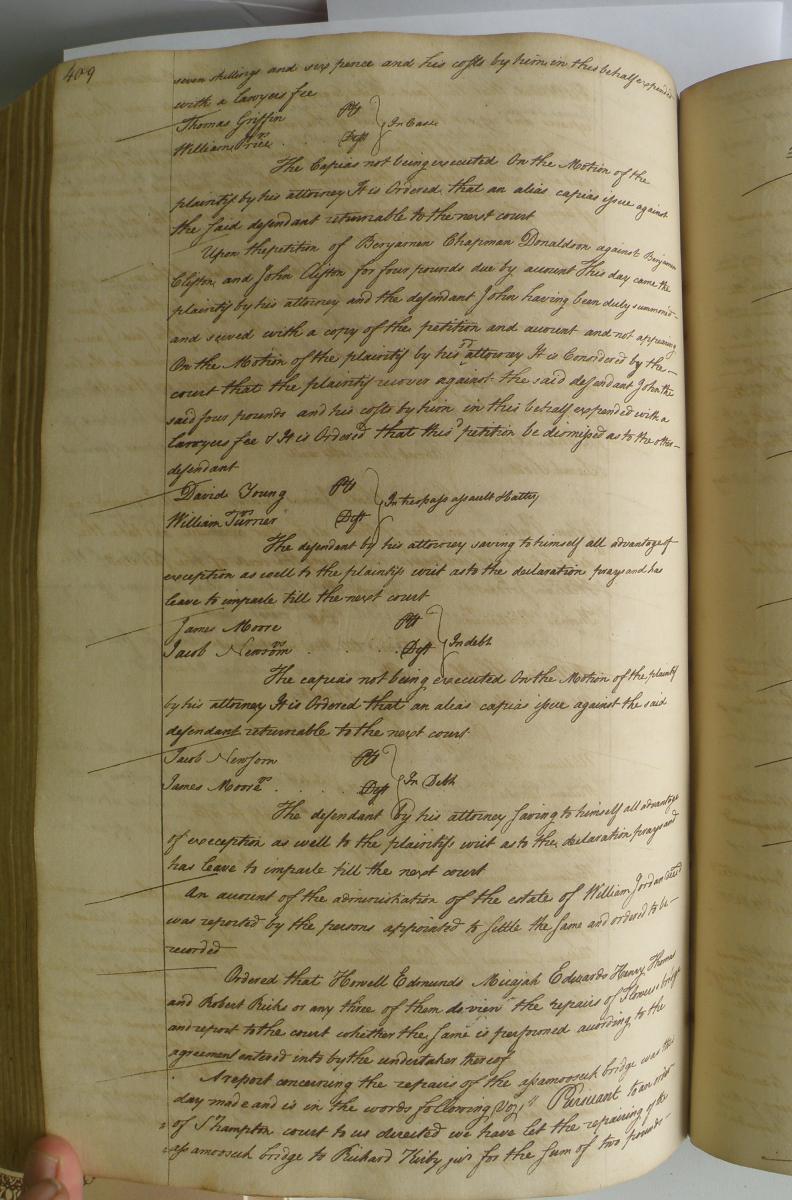 409
seven shillings and six pence and his costs by him in this behalf expended
with a lawyers fee
Thomas Griffin Plt
vs In Case
William Price Deft
The Capias not being executed On the Motion of the
plaintif by his attorney It is Ordered that an alias capias issue against
the said defendant returnable to the next court
Upon the petition of Benjamen Chapman Donaldson against Benjamen
Clifton and John Clifton for four pounds due by account This day came the
plaintif by his attorney and the defendant John having been duly summond
and served with a copy of the petition and account and not appearing
On the Motion of the plaintif by his attorney It is Considered by the
court that the plaintif recover against the said defendant John the
said four pounds and his costs by him in this behalf expended with a
lawyers fee & It is Ordered that this petition be dismissed as to the other
defendant
David Young Plt
vs In trespass assault & battery
William Turner Deft
The defendant by his attorney saving to himself all advantage of
exception as well to the plaintifs writ as to the declaration prays and has
leave to imparle till the next court
James Moore Plt
vs In debt
Jacob Newsom Deft
The capias not being executed On the Motion of the plaintif
by his attorney It is Ordered that an alias capias issue against the said
defendant returnable to the next court
Jacob Newsom Plt
vs In Debt
James Moore Deft
The defendant by his attorney saving to himself all advantage
of exception as well to the plaintifs writ as to the declaration prays and
has leave to imparle till the next court
An account of the administration of the estate of William Jordan decd
was reported by the persons appointed to settle the same and ordered to be
recorded
Ordered that Howell Edmunds Micajah Edwards Henry Thomas
and Robert Ricks or any three of them do view the repairs of bridge
and report to the court whether the same is performed according to the
agreement entered into by the undertaker thereof
A report concerning the repairs of the assamoosuck bridge was this
day made and is in the words following Viz " Pursuant to an order
of S Hampton court to us directed we have let the repairing of the
assamoosuck bridge to Richard Kirby junr for the sum of two pounds